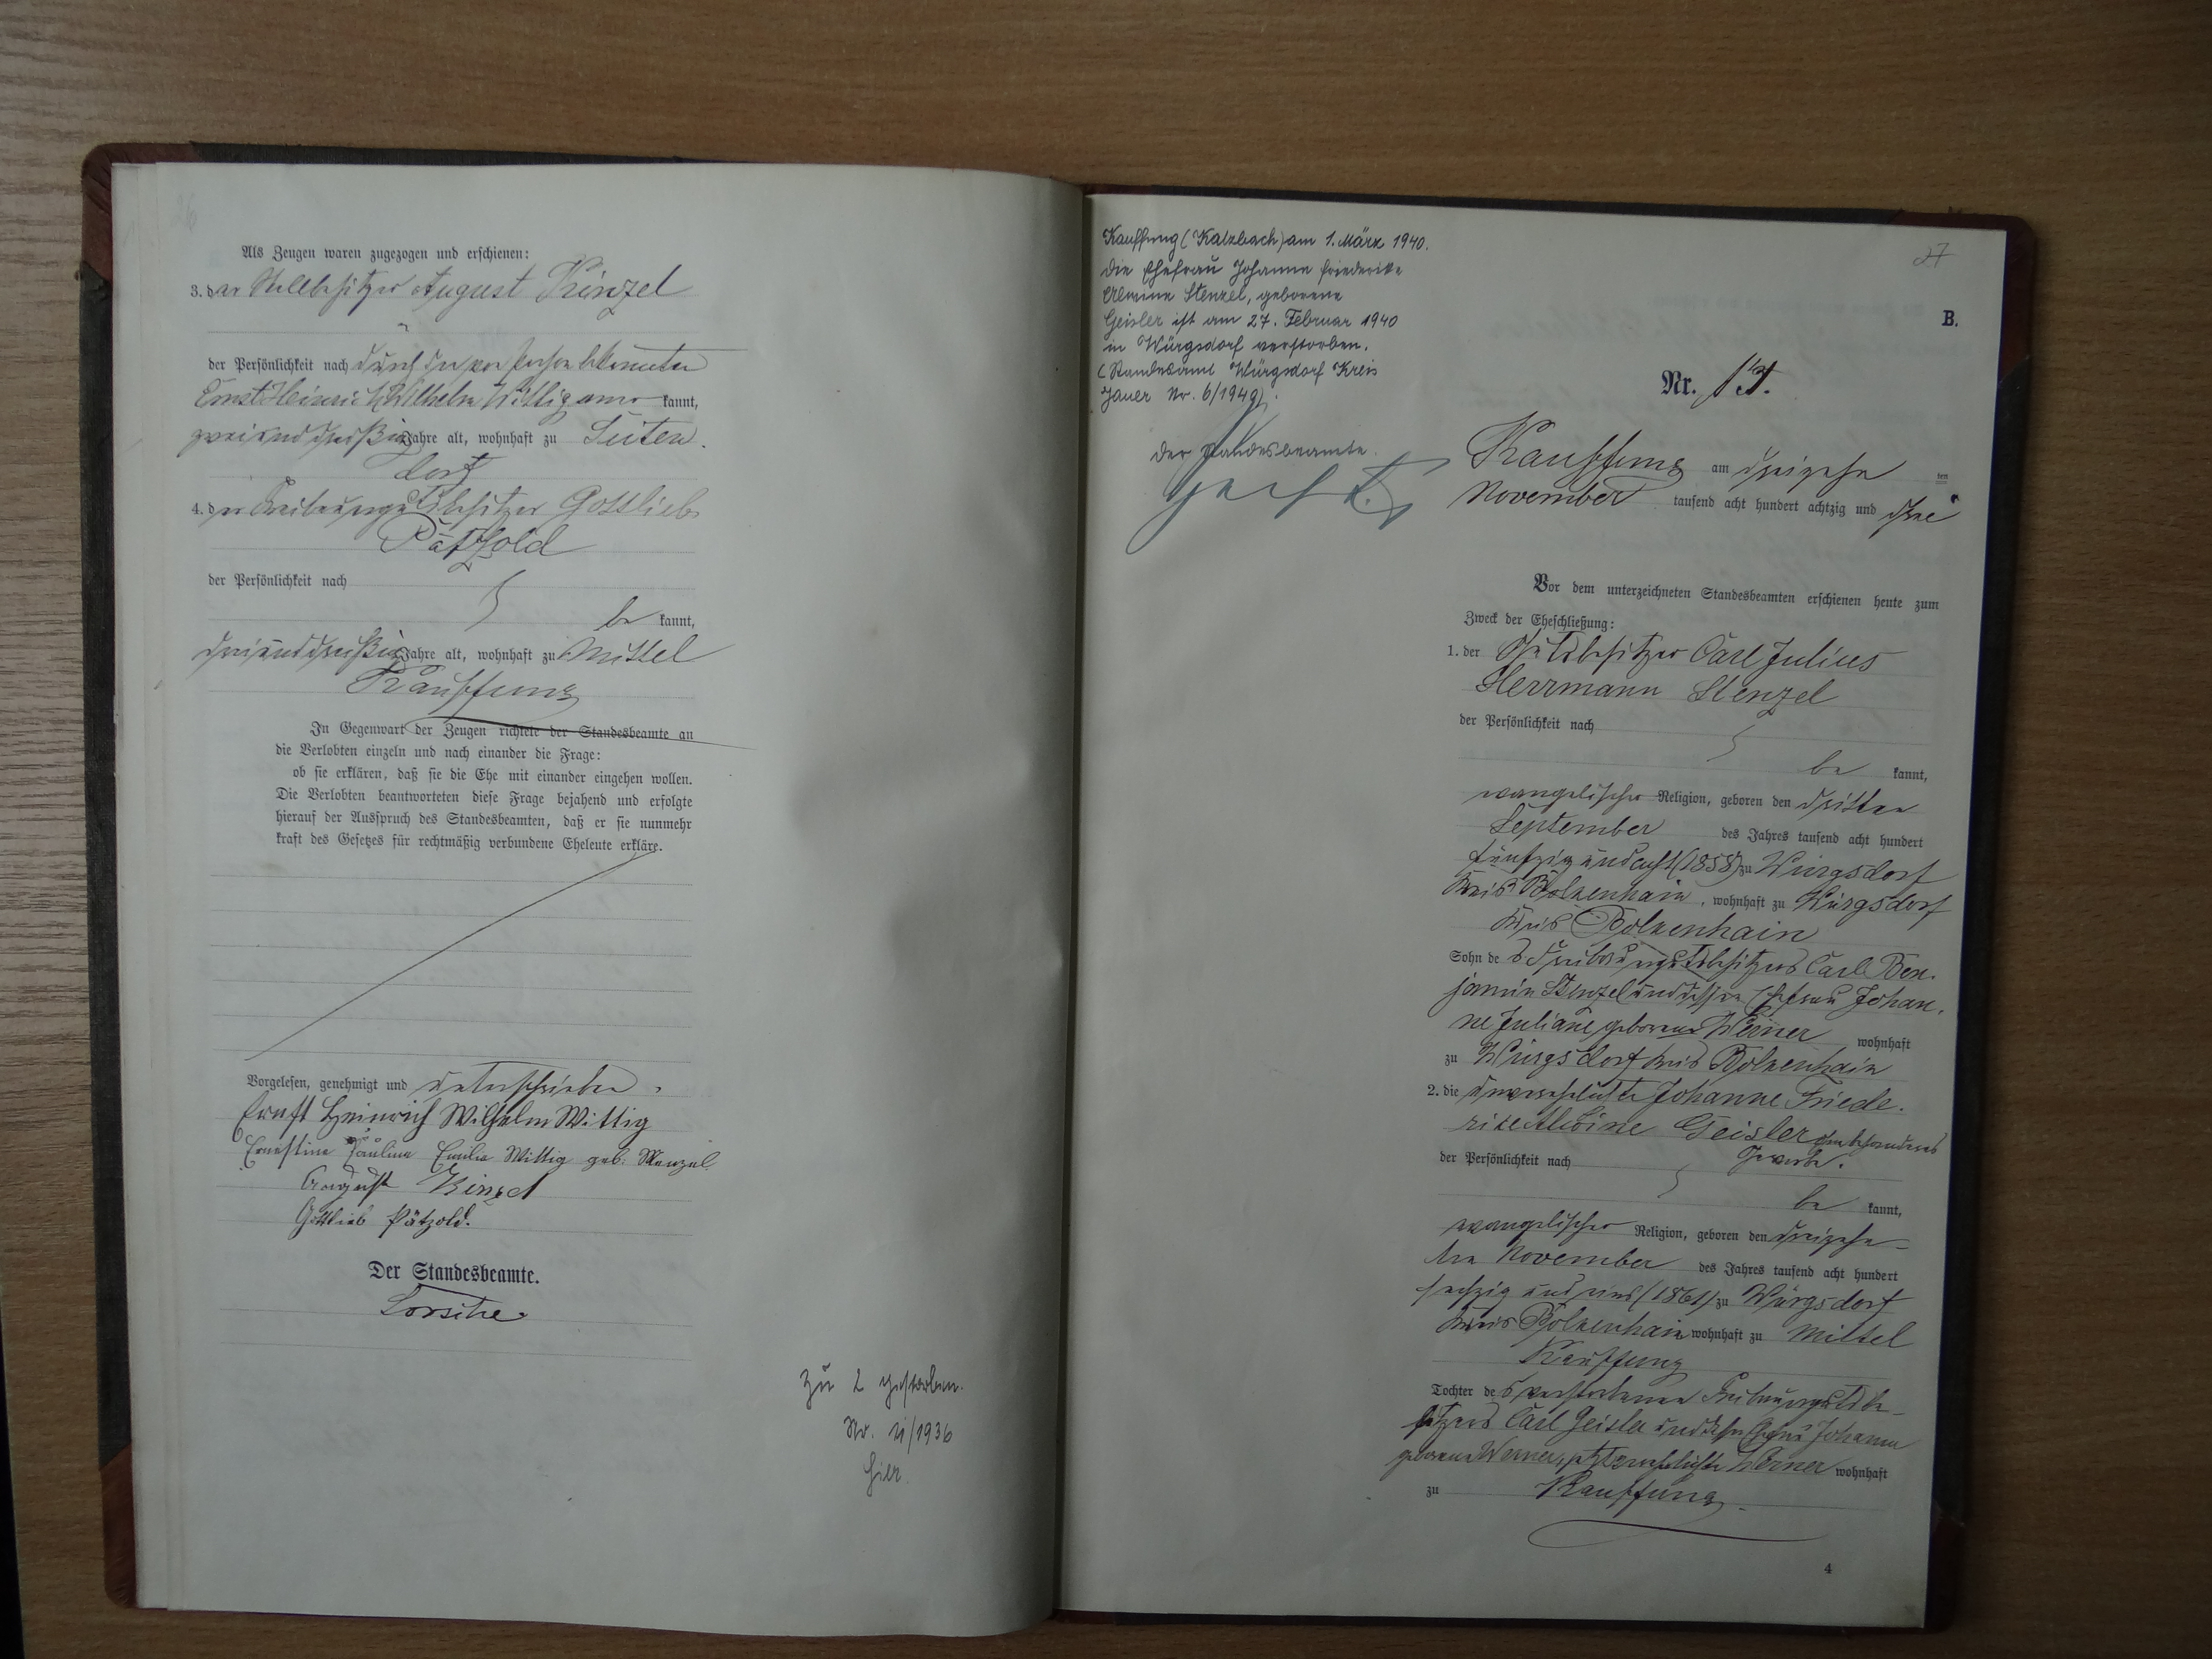 26
Als Zeugen waren zugezogen und erschienen:
3. der Stellbesitzer August Kinzel
der Persönlichkeit nach durch den von Person bekannten
Ernst Heinrich Wilhelm Wittig aner kannt,
zweiunddreißig Jahre alt, wohnhaft zu Seiten-
dorf
4. der Freibaurgutsbesitzer Gottlieb
Pätzold
der Persönlichkeit nach
be kannt,
dreiunddreißig Jahre alt, wohnhaft zu Mittel
Kauffung
In Gegenwart der Zeugen richtete der Standesbeamte an
die Verlobten einzeln und nach einander die Frage:
ob sie erklären, daß sie die Ehe mit einander eingehen wollen.
Die Verlobten beantworteten diese Frage bejahend und erfolgte
hierauf der Ausspruch des Standesbeamten, daß er sie nunmehr
kraft des Gesetzes für rechtmäßig verbundene Eheleute erkläre.
Vorgelesen, genehmigt und unterschrieben.
Ernst Heinrich Wilhelm Wittig
Ernestine Pauline Emilie Wittig geb. Menzel
August Kinzel
Gottlieb Pätzold.
Der Standesbeamte.
zu 2 gestorben.
No. 11/1936
hier.
Kauffung (Katzbach) am 1. März 1940.
Die Ehefrau Johanne Friederike
Stenzel, geborene
Geisler ist am 27. Februar 1940
in Würgsdorf verstorben.
(Standesamt Würgsdorf Kreis
Jauer Nr. 6/1940).
Der Standesbeamte.
27
B.
Nr. 13.
Kauffung am dreizehn ten
November tausend acht hundert achtzig und drei
Vor dem unterzeichneten Standesbeamten erschienen heute zum
Zweck der Eheschließung:
1. der Gutsbesitzer Carl Julius
Herrmann Stenzel
der Persönlichkeit nach
be kannt,
evangelischer Religion, geboren den dritten
September des Jahres tausend acht hundert
fünfzig und acht (1858) zu Würgsdorf
Kreis Bolkenhain, wohnhaft zu Würgsdorf
Kreis Bolkenhain
Sohn des Freibaurgutsbesitzers Carl Ben-
jamin Stenzel und dessen Ehefrau Johan-
ne Juliane geborene Werner wohnhaft
zu Würgsdorf Kreis Bolkenhain
2. die unverehelichte Johanne Friede-
rike Alwine Geisler ohne besonderes
Gewerbe.
der Persönlichkeit nach
be kannt,
evangelischer Religion, geboren den dreizehn-
ten November des Jahres tausend acht hundert
sechzig und eins (1861) zu Würgsdorf
Kreis Bolkenhain, wohnhaft zu Mittel
Kauffung
Tochter des verstorbenen Freibaurgutsbe-
sitzers Carl Geisler und dessen Ehefrau Johanne
geborene Werner, jetzt verehelichte Werner wohnhaft
zu Kauffung.
4